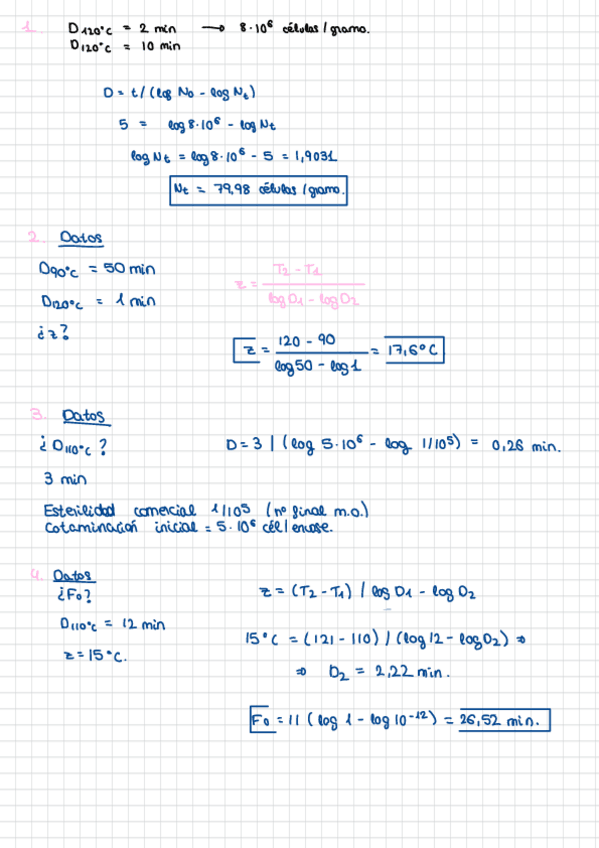 1. D120°C = 2 min → 8·10⁶ células/gramo.
D120°C = 10 min
D = t/(log No - log Nt)
5 = log 8·10⁶ - log Nt
log Nt = log 8·10⁶ - 5 = 1,9031
Nt = 79,98 células/gramo.
2. Datos
D90°C = 50 min
z = T2 - T1 / log D1 - log D2
D120°C = 1 min
¿z?
z = 120 - 90 / log 50 - log 1 = 17,6°C
3. Datos
¿D110°C? D = 3 / (log 5·10⁶ - log 1/10⁵) = 0,26 min.
3 min
Esterilidad comercial 1/10⁵ (nº final m.o.)
Cotaminación inicial = 5·10⁶ cél/envase.
4. Datos
¿Fo? z = (T2 - T1) / log D1 - log D2
D110°C = 12 min
15°C = (121 - 110) / (log 12 - log D2) ⇒
z = 15°C.
⇒ D2 = 2,22 min.
Fo = 11 (log 1 - log 10⁻¹²) = 26,52 min.